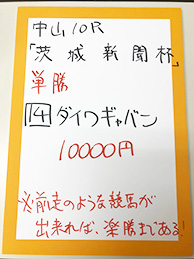 中山10R
「茨城新聞杯」
単勝
14ダイワギャバン
10000円
※前走のような競馬が
出来れば、楽勝まである!